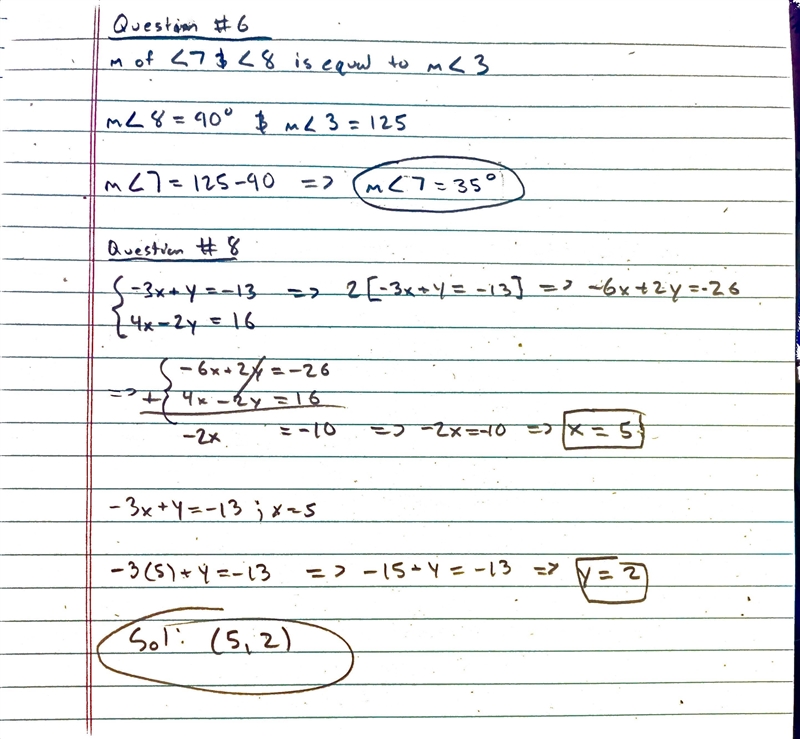 Question #6
m of ∠7 & ∠8 is equal to m∠3
m∠8 = 90° & m∠3 = 125
m∠7 = 125-90 => m∠7 = 35°
Question #8
{-3x+y=-13 => 2[-3x+y=-13] => -6x+2y=-26
{4x-2y=16
=> + {-6x+2y=-26
4x-2y=16
-2x = -10 => -2x=-10 => x=5
-3x+y=-13 ; x=5
-3(5)+y=-13 => -15+y=-13 => y=2
Sol: (5,2)